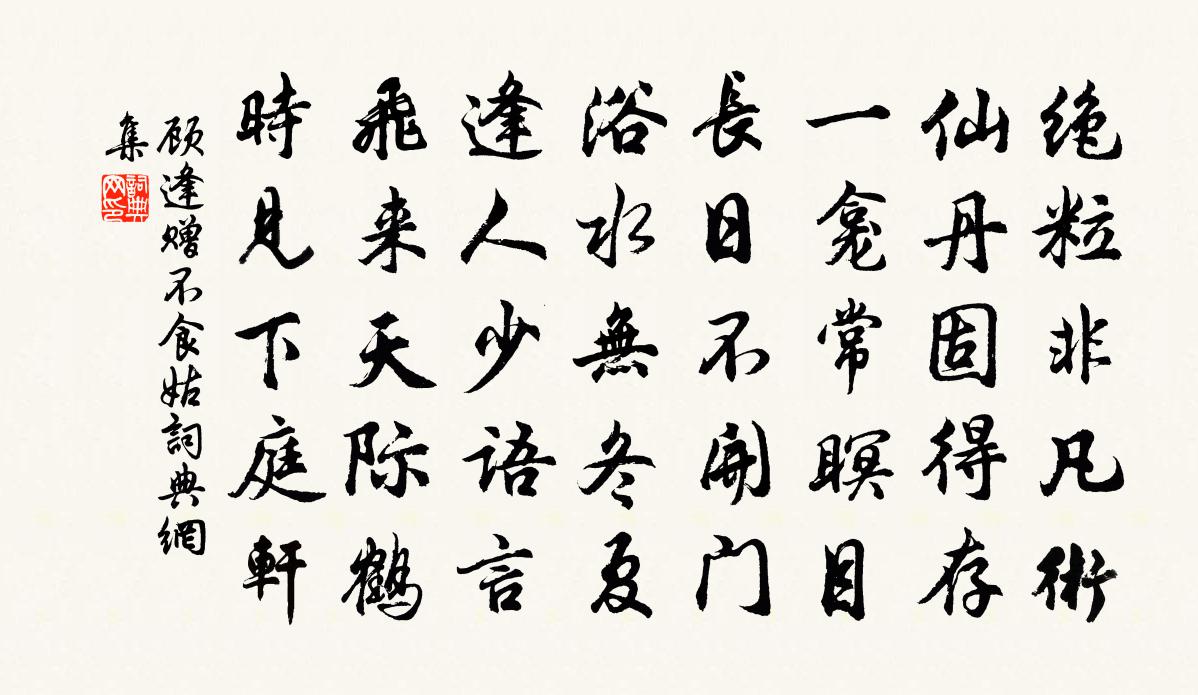 绝粒非凡術
仙丹固得存
一龛常瞑目
長日不開门
浴水無冬夏
逢人少语言
飛来天际鹤
時見下庭軒
顾逢赠不食姑詞典網
集
詞典
网印